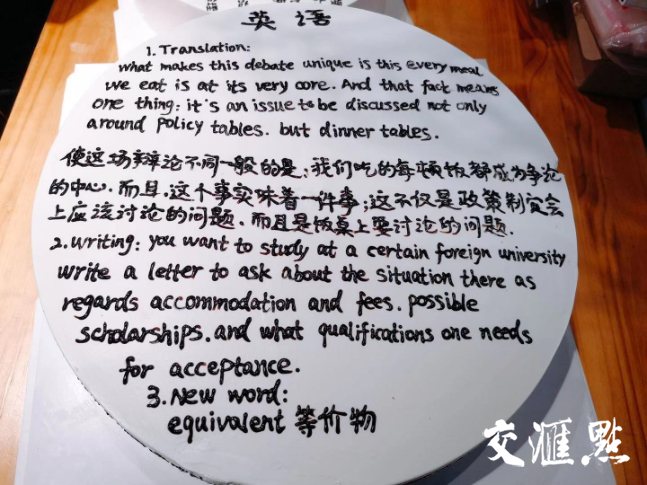 英语
1. Translation:
what makes this debate unique is this every meal
we eat is at its very core. And that fact means
one thing: it's an issue to be discussed not only
around policy tables. but dinner tables.
使这场辩论不同一般的是,我们吃的每顿饭都成为争论
的中心.而且,这个事实味着一件事;这不仅是政策制定会
上应该讨论的问题.而且是饭桌上要讨论的问题.
2. writing: you want to study at a certain foreign university
write a letter to ask about the situation there as
regards accommodation and fees. possible
scholarships. and what qualifications one needs
for acceptance.
3. New word:
equivalent 等价物
交汇點